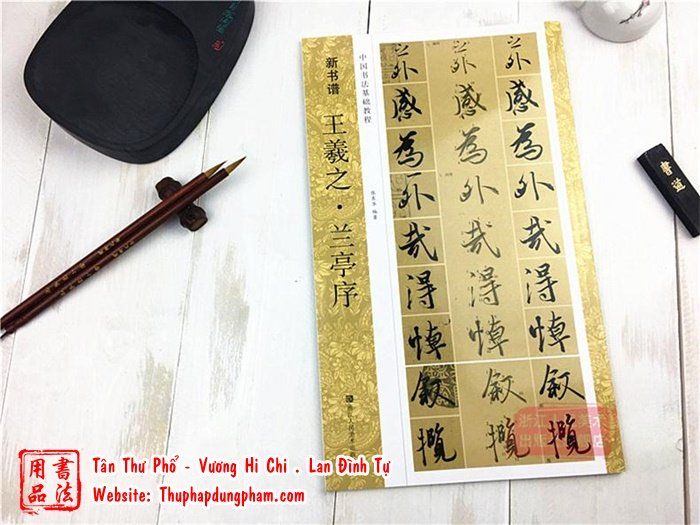 新书谱
王羲之·兰亭序
中国书法基础教程
之外 之外 之外
感 感 感
為 為 為
外 外 外
哉 哉 哉
得 得 得
悼 悼 悼
叙 叙 叙
攬 攬 攬
書道
書法
用品
Tân Thư Phổ - Vương Hi Chi . Lan Đình Tự
Website: Thuphapdungpham.com